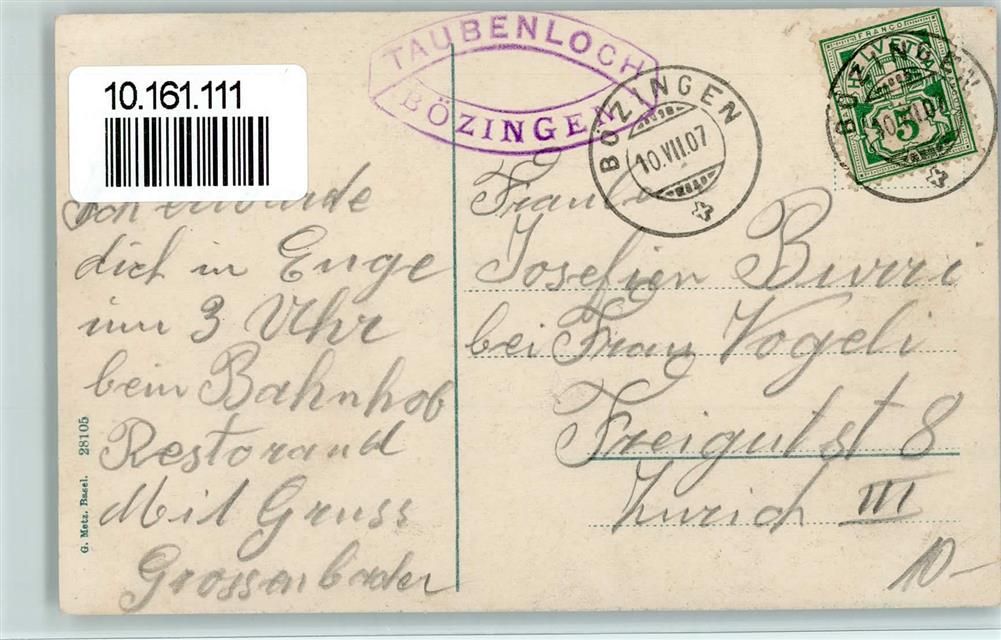 10.161.111
TAUBENLOCH
BÖZINGEN
BÖZINGEN
10.VII.07
FRANCO
5
BÖZINGEN
10.VII.07
Ich erwarde
dich in Enge
um 3 Uhr
bein Bahnhob
Restorand
Mit Gruss
Grossenbader
Josefien Burri
bei Frau Vogeli
Freigutst 8
Zürich III
10-
G. Metz, Basel. 28105